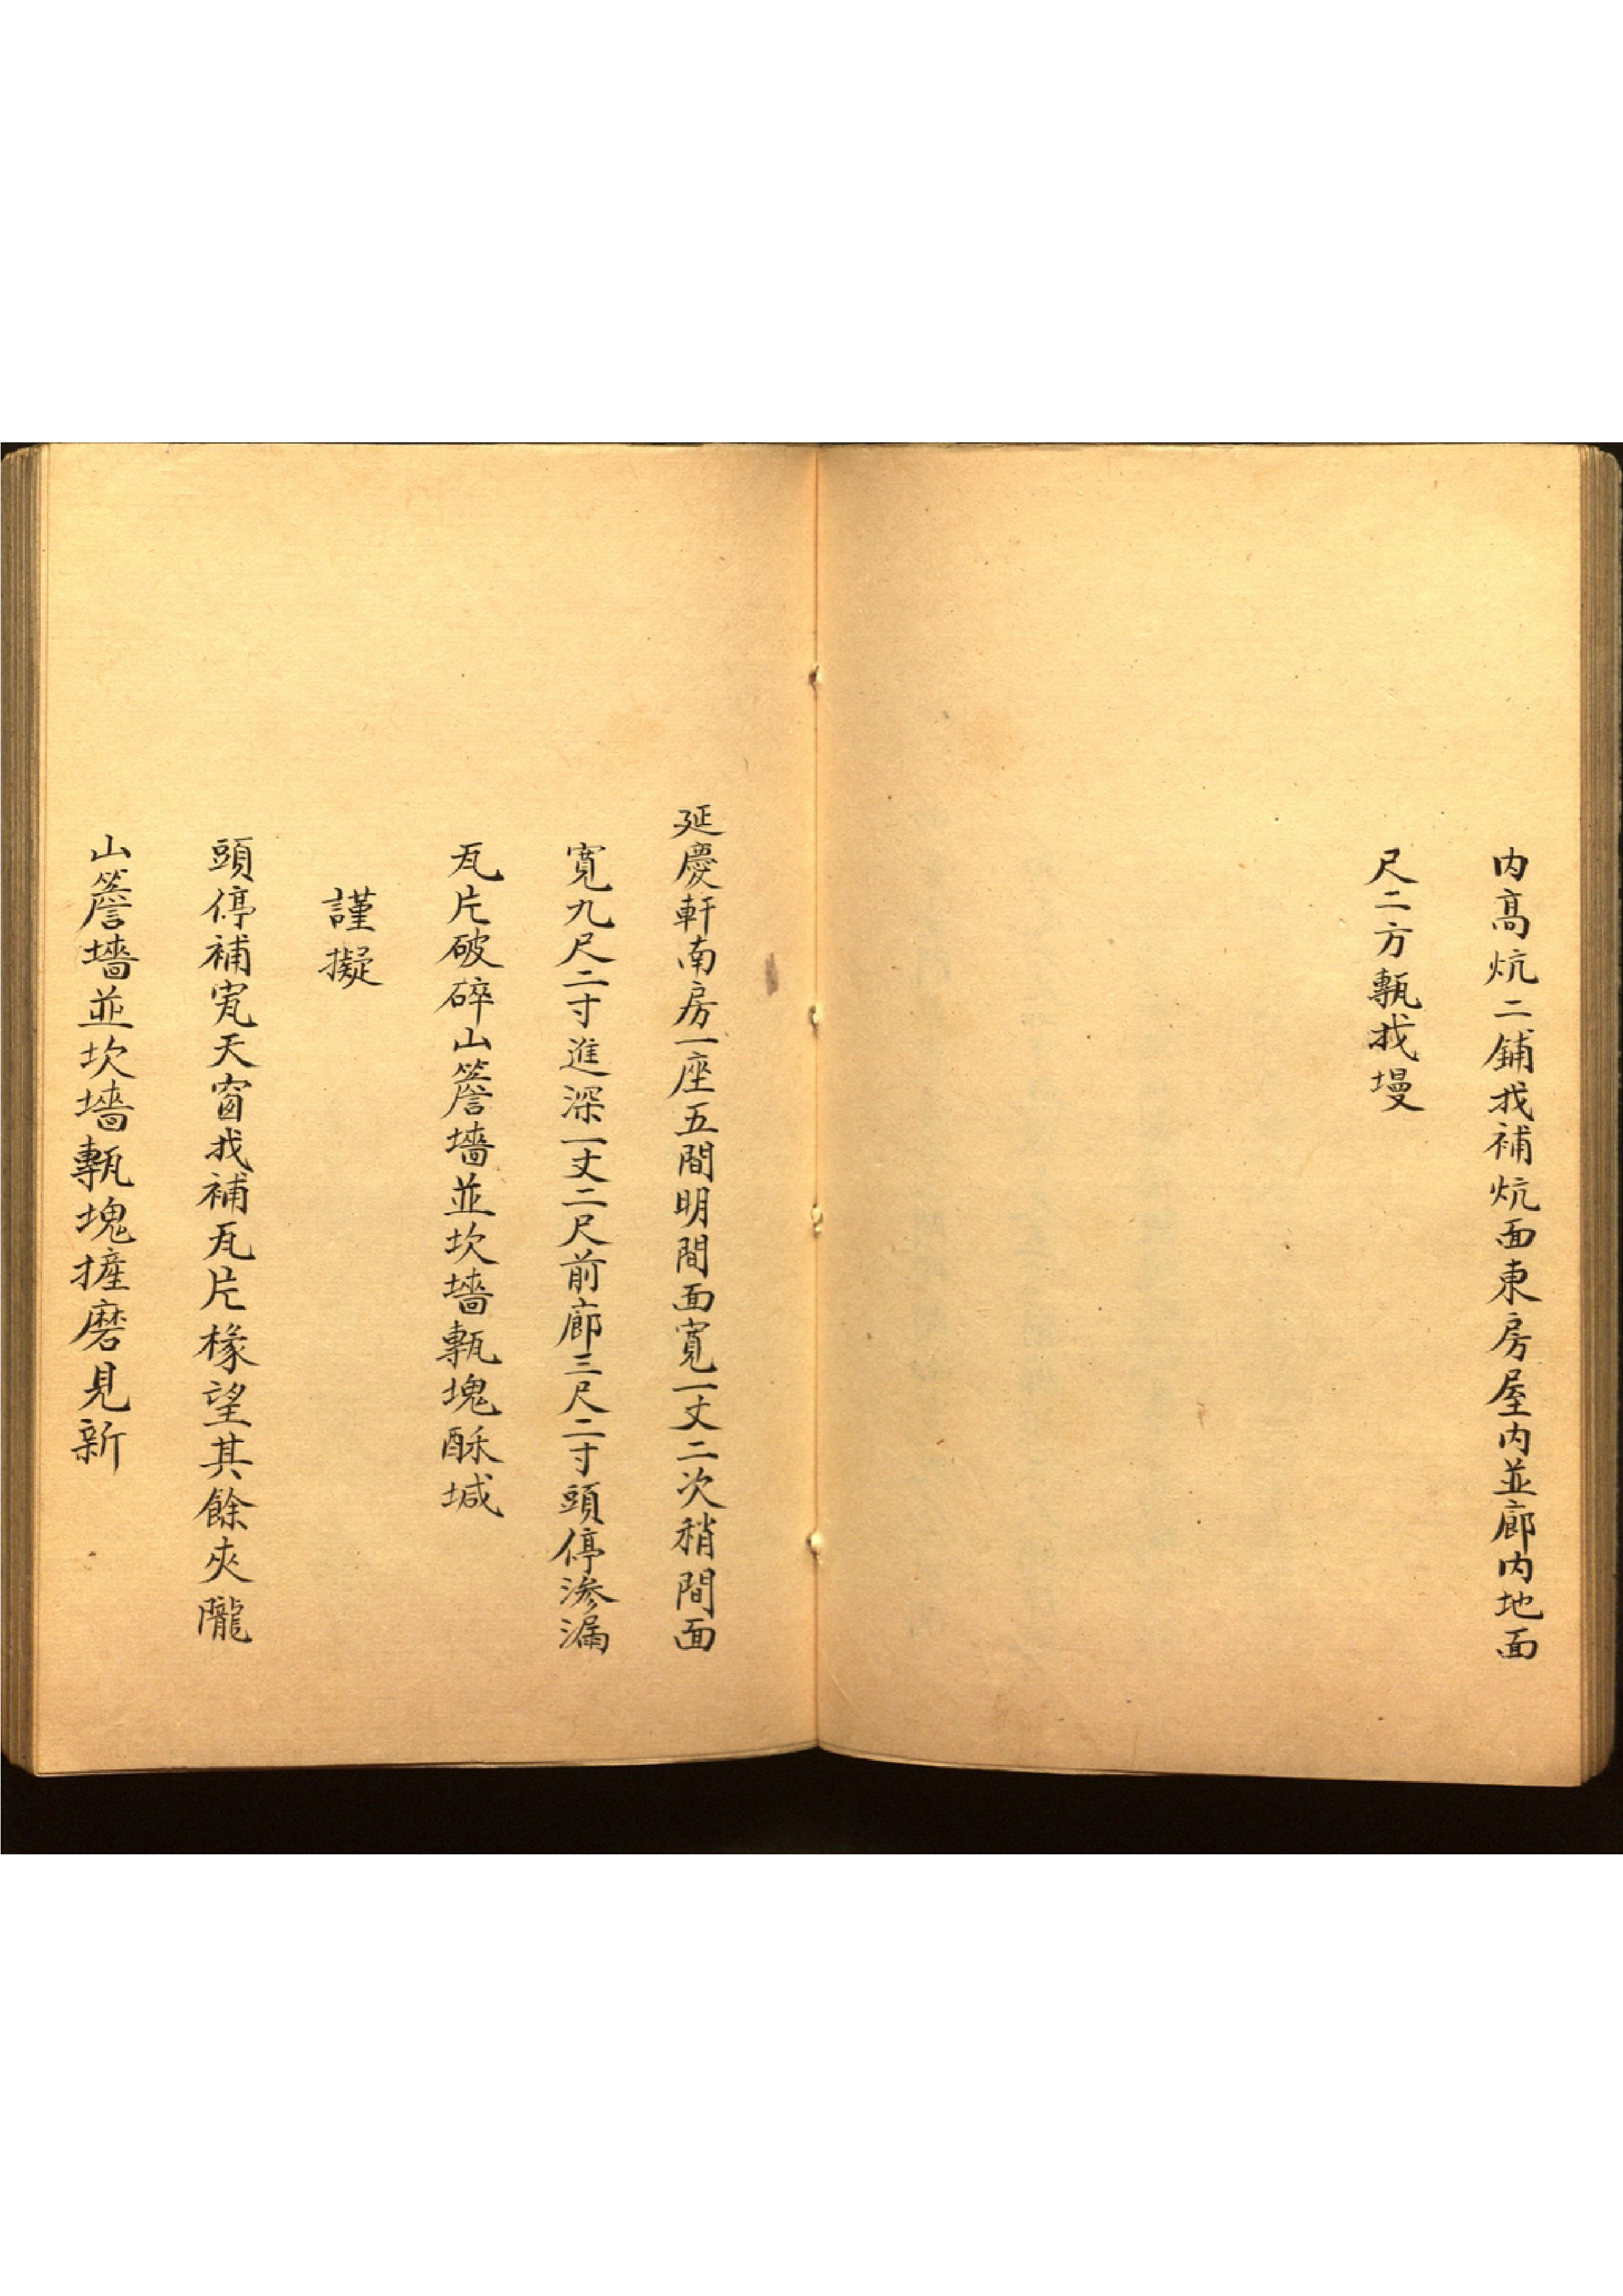 内高炕二鋪找補炕面東房屋内並廊内地面
尺二方甎找墁
延慶軒南房一座五間明間面寬一丈二次稍間面
寬九尺二寸進深一丈二尺前廊三尺二寸頭停滲漏
瓦片破碎山簷墻並坎墻甎塊酥堿
謹擬
頭停補㝸天窗找補瓦片椽望其餘夾隴
山簷墻並坎墻甎塊摌磨見新